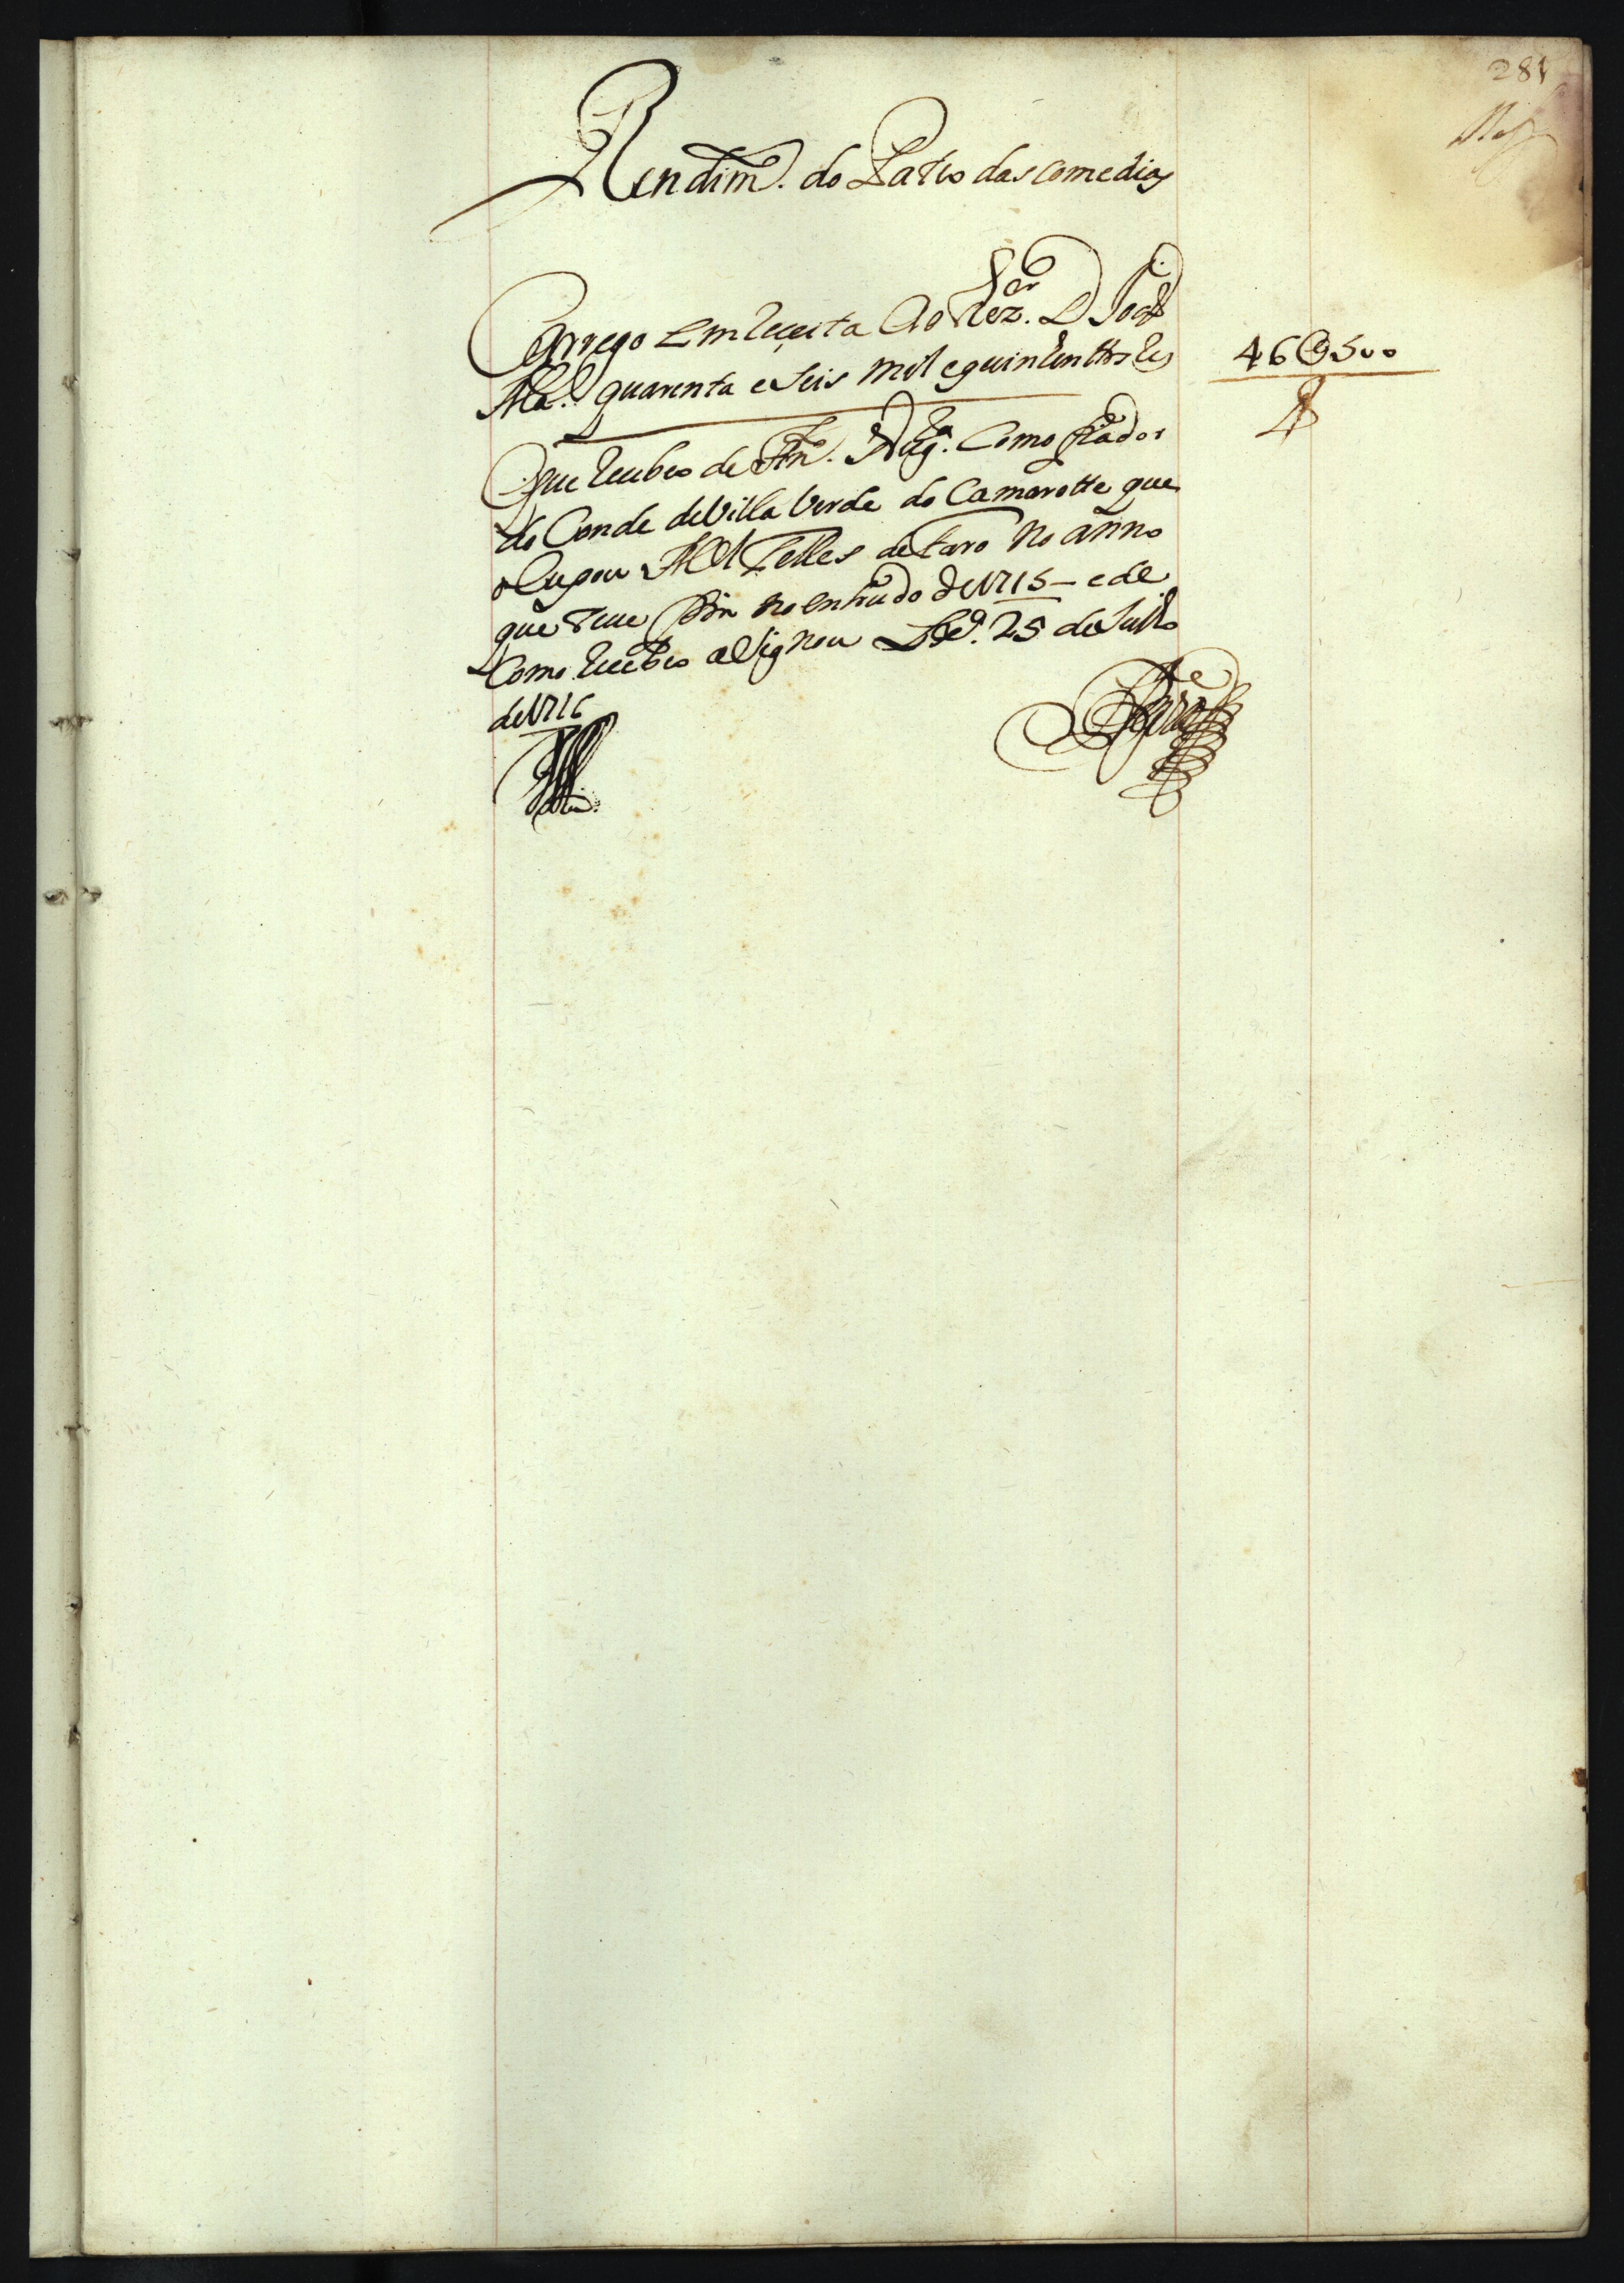 281
Rendim.to do Pateo das comedias
Carrego Em receita Ao Thez.or D Joseph
Ma. quarenta e seis mil e quinhenttos Res 46$500
Que recebeo de Fran.co Roiz. Como fiador
do Conde de Villa Verde do Camarotte que
alugou M.el Telles de Faro no anno
que teve fim no entrudo de 1715 – e de
Como recebeo asignou Lx.a 25 de Julho
de 1716